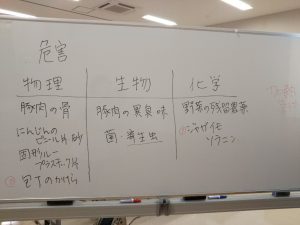 危害
物理 生物 化学
豚肉の骨 豚肉の異臭味 野菜の残留農薬
にんじんの
ビニール片 砂 菌・寄生虫 ジャガイモ
固形ルー ソラニン
プラスチック片
包丁のかけら